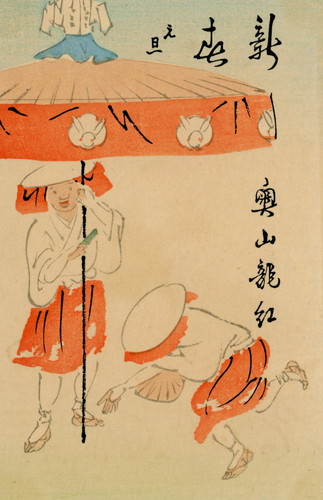 新春
元旦
奥山龍紅